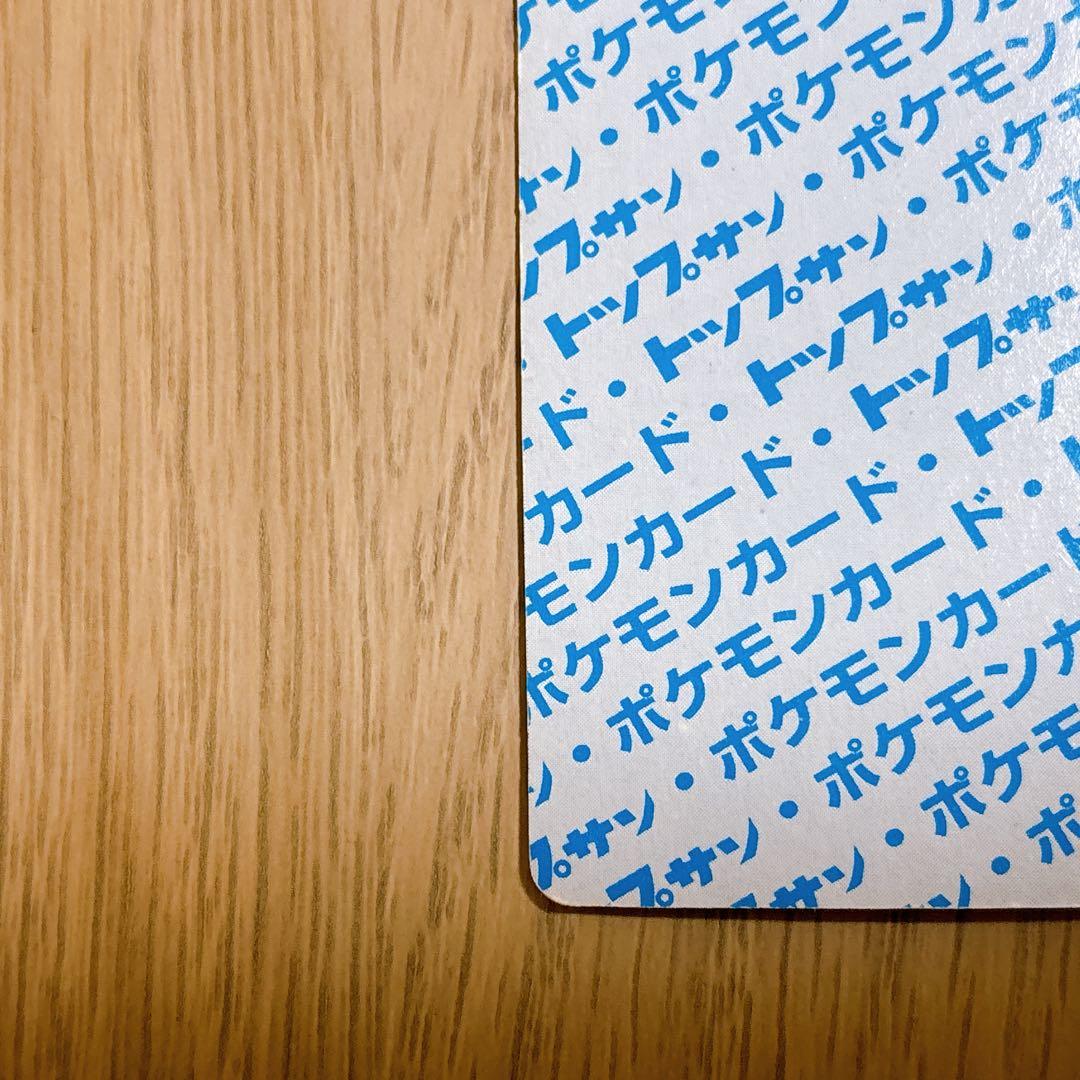 ポケモ
ン・ポケモン
プサン・ポケモン
トップサン・ポケモン
ード・トップサン・ポケモ
カード・トップサン・ポ
モンカード・トップサン
ポケモンカード・トップ
ン・ポケモンカード・ト
プサン・ポケモンカード
プサン・ポケモンカ
サン・ポケモ
ン・ポ